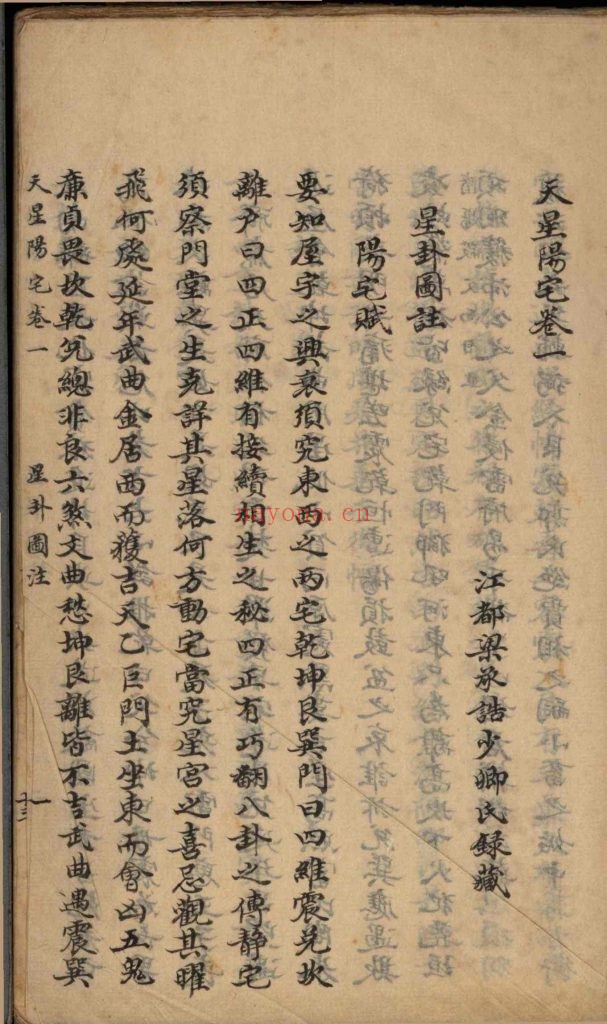 天星陽宅卷一
江都梁承誥少卿氏錄藏
星卦圖註
陽宅賦
要知屋宇之興衰須究東西之兩宅乾坤艮巽門曰四維震兌坎
離戶曰四正四維有接續相生之秘四正有巧翻八卦之傳靜宅
須察門堂之生克詳其星落何方動宅當究星宮之喜忌觀其曜
飛何處延年武曲金居西而獲吉天乙巨門土坐東而會凶五鬼
廉貞畏坎乾兌總非良六煞文曲愁坤艮離皆不吉武曲遇震巽
天星陽宅卷一
星卦圖注
一
十三